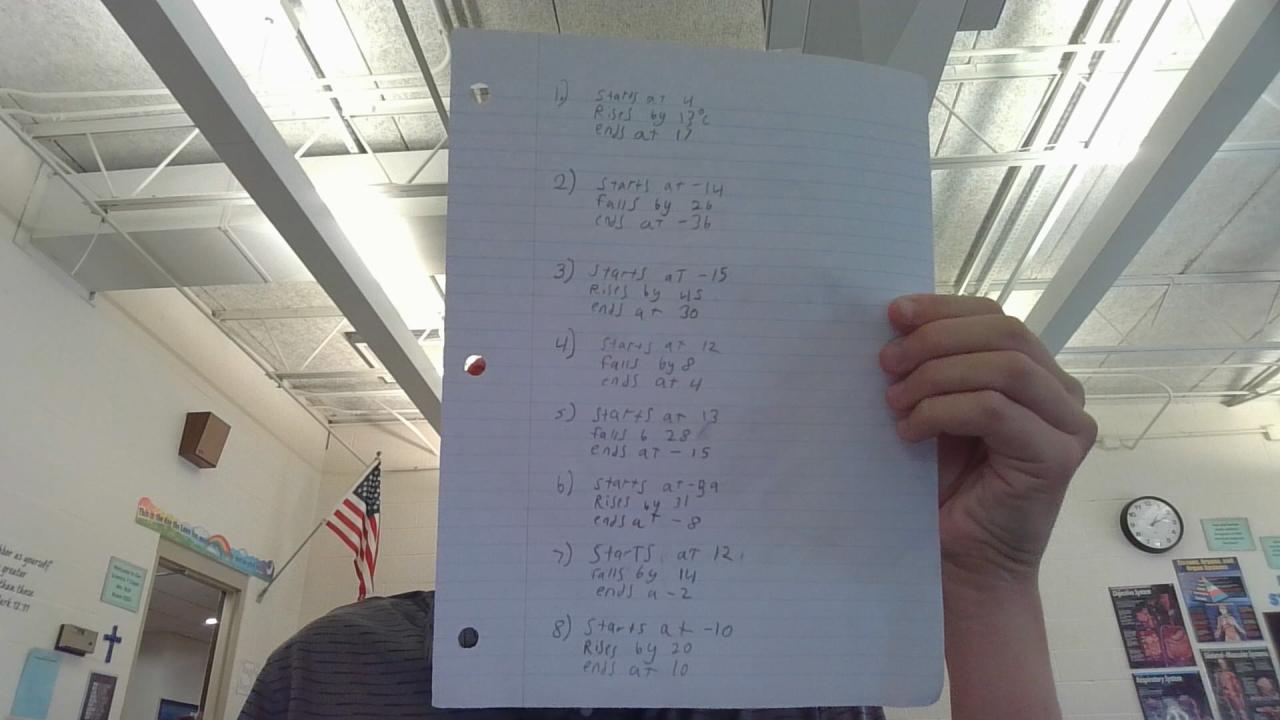 1) Starts at 4
Rises by 13°C
ends at 17
2) Starts at -14
falls by 26
ends at -36
3) Starts at -15
Rises by 45
ends at 30
4) Starts at 12
falls by 8
ends at 4
5) Starts at 13
falls b 28
ends at -15
6) Starts at
Rises by 31
ends at -8
7) Starts at 12
falls by 14
ends a -2
8) Starts at -10
Rises by 20
ends at 10
This is the day the Lord has
Digestive System
Tissues, Organs, and
Organ Systems
Respiratory System
greater
than these